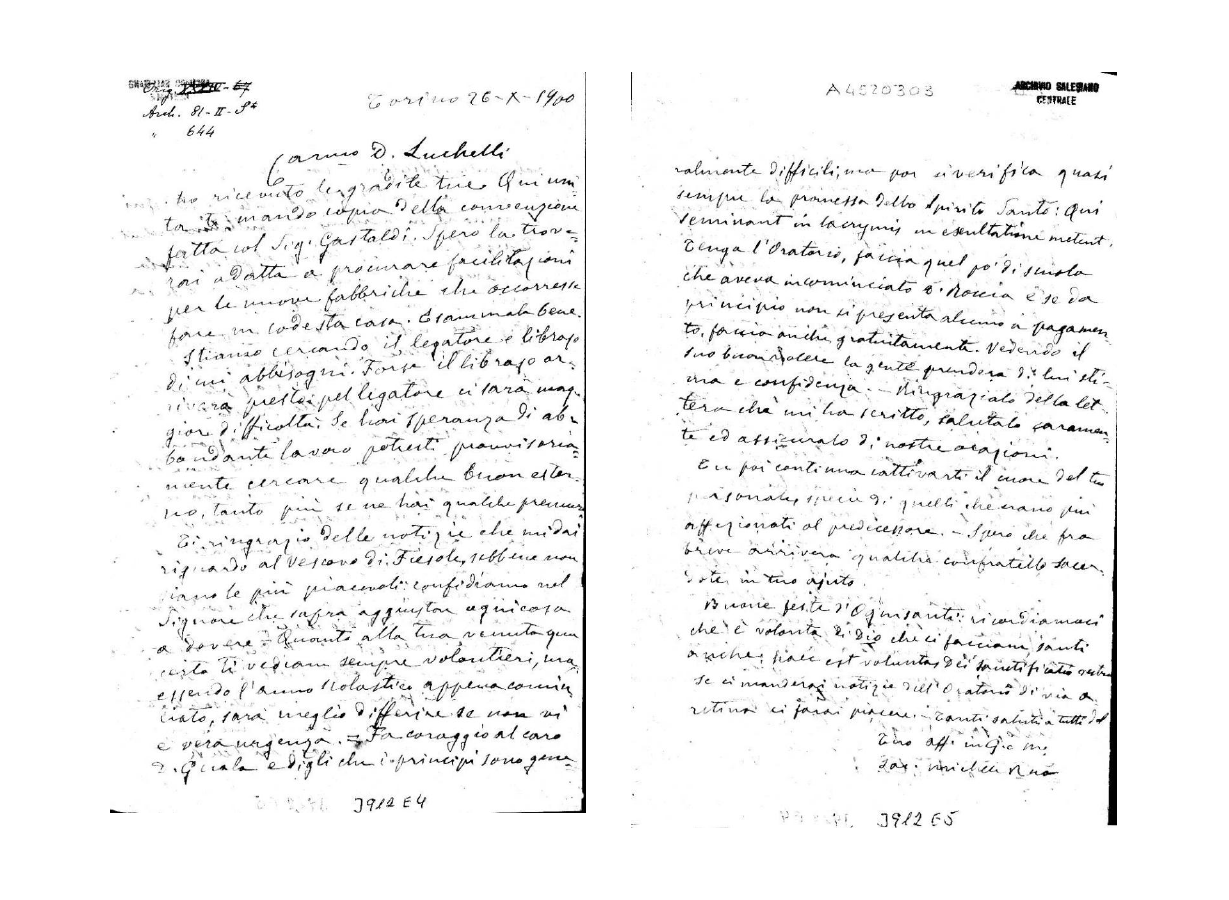 Torino 26-X-1900
Arch. 81-II-S^a
" 644
Carmo D. Luchelli
ho ricevuto le gradite tue. Qui uni-
ta ti mando copia della convenzione
fatta col Sig. Gastaldi. Spero la trove=
rai adatta a procurare facilitazioni
per le nuove fabbriche che occorresse
fare in codesta casa. Esaminala bene.
Stiamo cercando il legatore e librajo
di cui abbisogni. Forse il librajo ar-
riverà presto; pel legatore ci sarà mag-
gior difficoltà. Se hai speranza di ab-
bondante lavoro potresti provvisoria=
mente cercare qualche buon ester-
no, tanto più se ne hai qualche premura
Ti ringrazio delle notizie che mi dai
riguardo al Vescovo di Fiesole, sebbene non
siano le più piacevoli: confidiamo nel
Signore che saprà aggiustar ogni cosa
a dovere - Quanto alla tua venuta qua
certo ti vediam sempre volontieri, ma
essendo l'anno scolastico appena comin
ciato, sarà meglio differire se non vi
è vera urgenza. = Fa coraggio al caro
D. Guala e digli che i principi sono gene=
J912 E4
A4520303
ARCHIVIO SALESIANO
CENTRALE
ralmente difficili, ma poi si verifica quasi
sempre la promessa dello Spirito Santo: Qui
seminant in lacrymis in exultatione metent.
Tenga l'Oratorio, faccia quel po' di scuola
che aveva incominciato D. Roccia e se da
principio non si presenta alcuno a pagamen
to, faccia anche gratuitamente. Vedendo il
suo buon volere la gente prenderà di lui sti-
ma e confidenza. - Ringrazialo della let
tera che mi ha scritto, salutalo caramen
te ed assicuralo di nostre orazioni.
Tu poi continua cattivarti il cuore del tuo
personale, specie di quelli che erano più
affezionati al predecessore. - Spero che fra
breve arriverà qualche confratello sacer-
dote in tuo ajuto.
Buone feste d'Ognisanti: ricordiamoci
che è volontà di Dio che ci facciam santi
anche: haec est voluntas Dei sanctificatio vestra
Se ci manderai notizie dell'Oratorio di via a
retina ci farai piacere. - Tanti saluti a tutti dal
Tuo aff. in G. e M.
Sac. Michele Rua
J912 E5